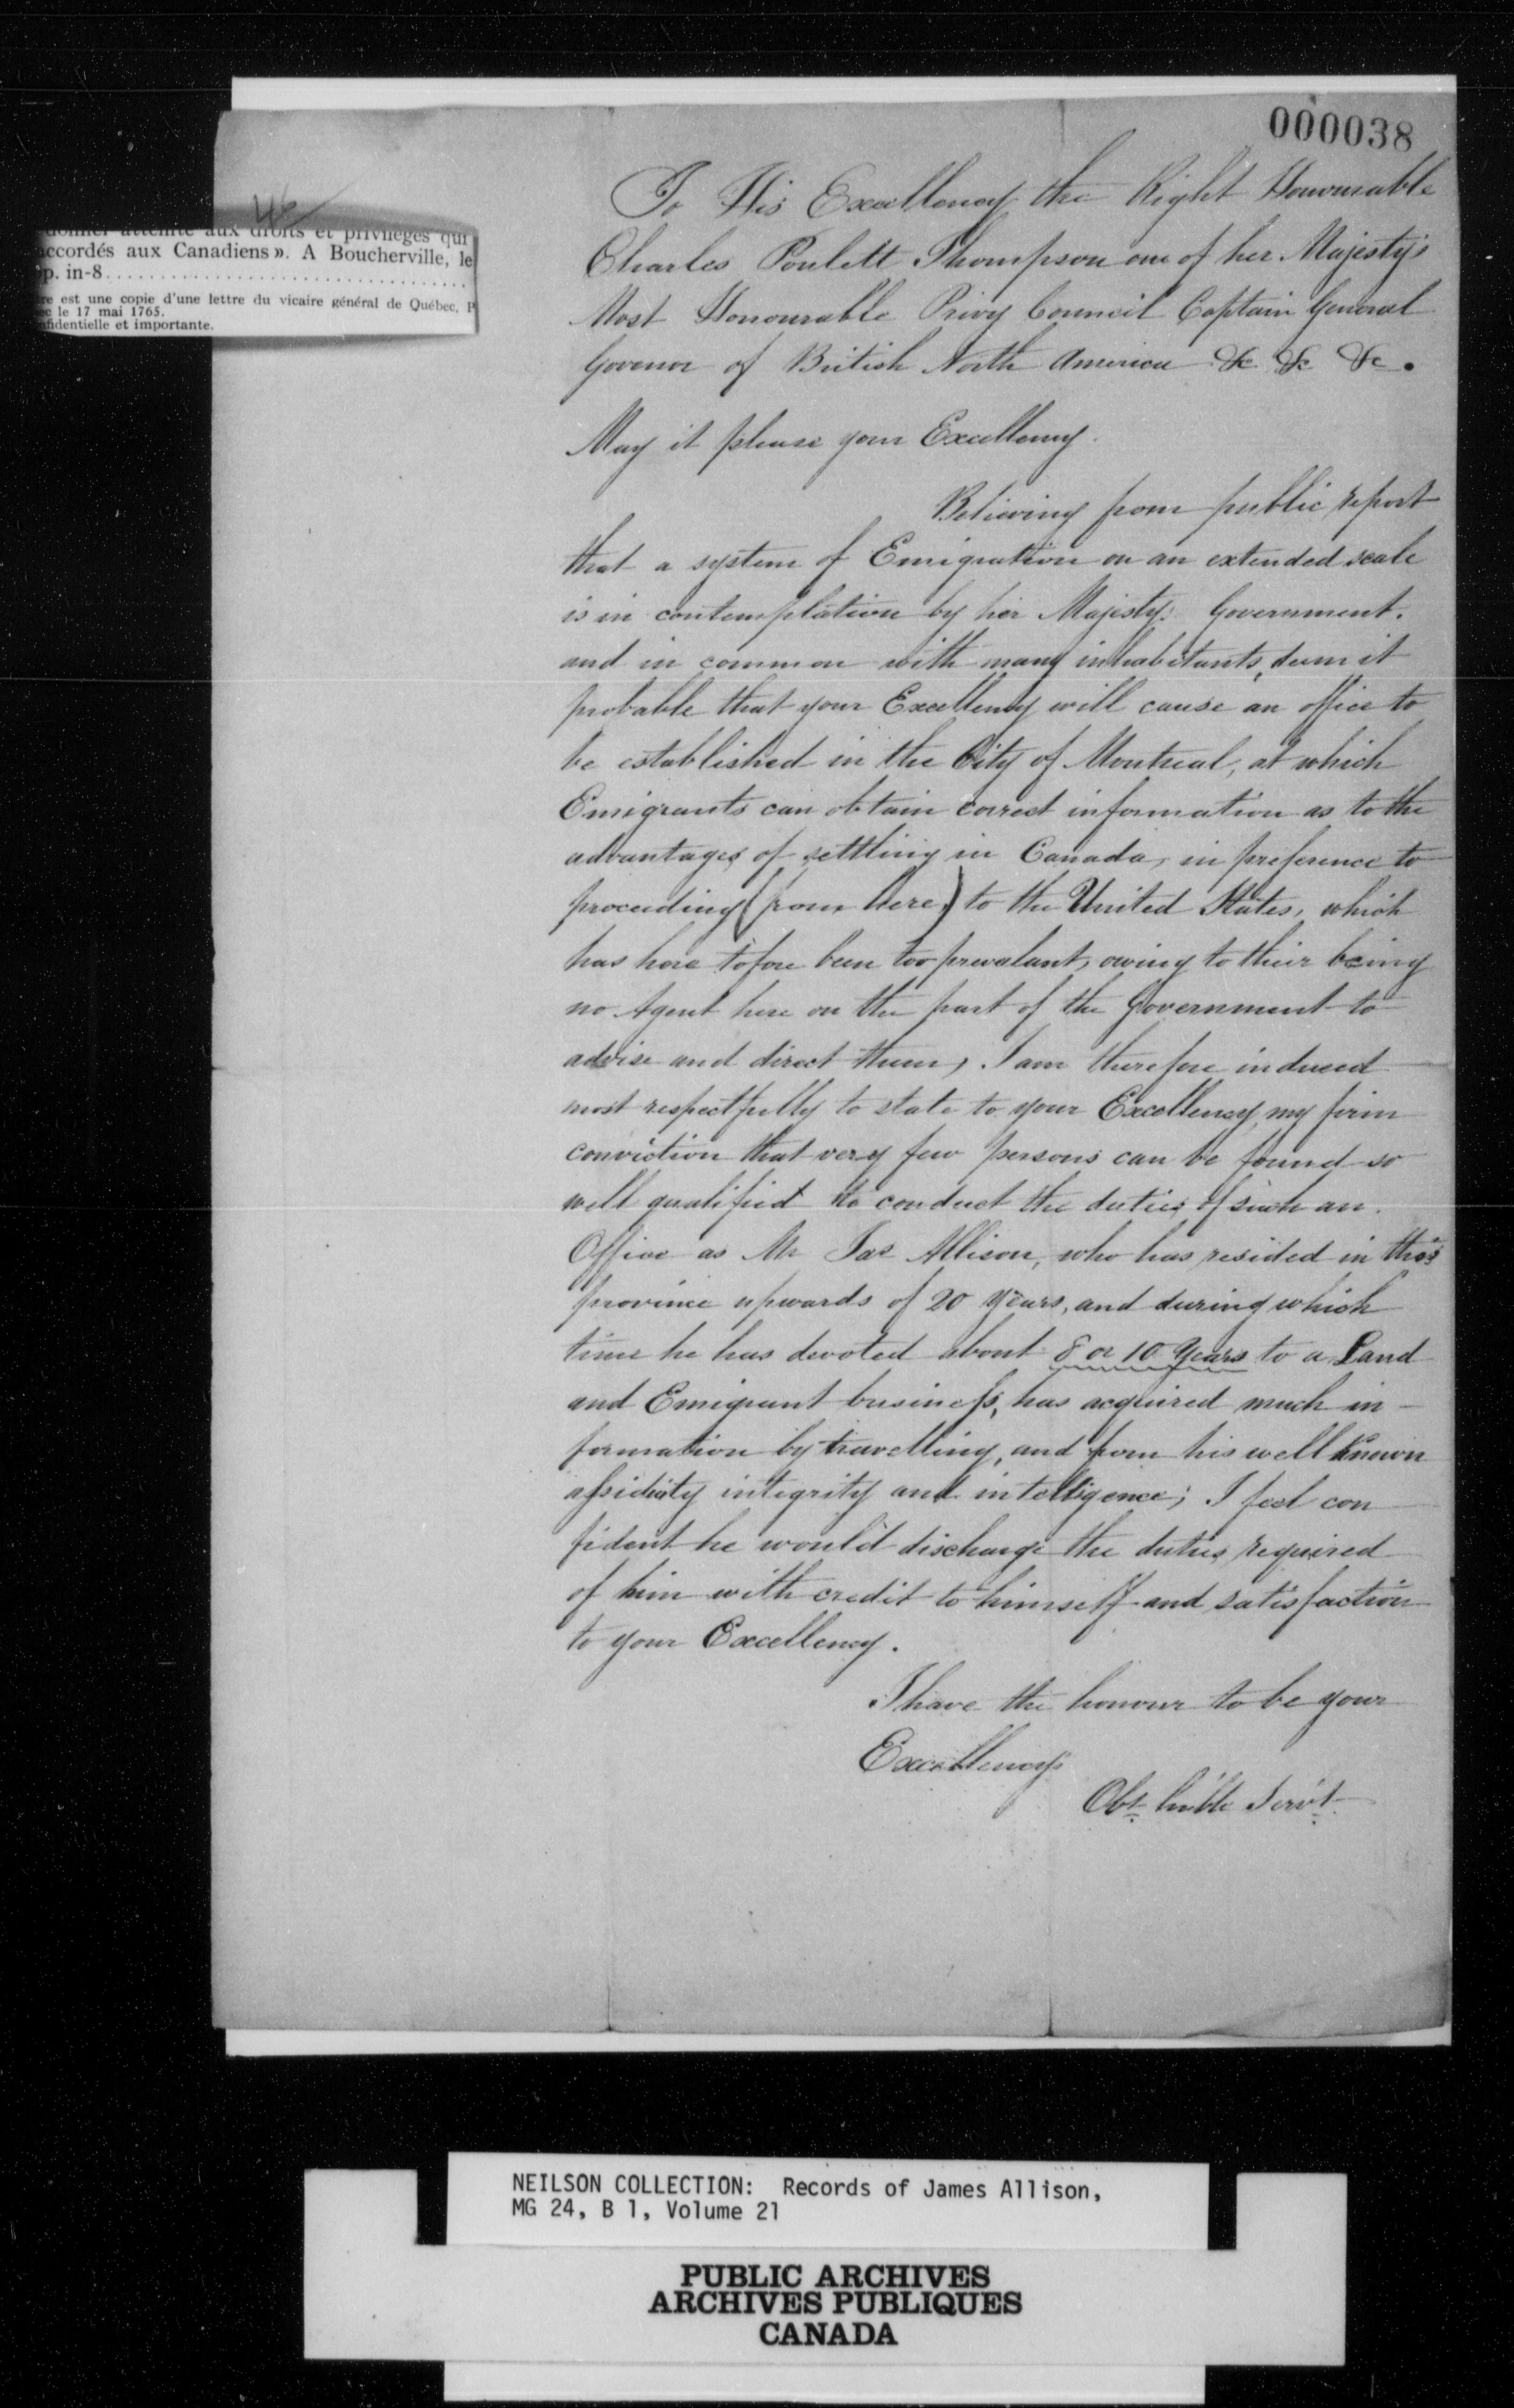 000038
To His Excellency the Right Honourable
Charles Poulett Thompson one of her Majesty's
Most Honourable Privy Council Captain General
Govenor of British North America &c &c &c.
May it please your Excellency.
Believing from public report
that a system of Emigration on an extended scale
is in contemplation by her Majesty's Government.
and in common with many inhabitants, deem it
probable that your Excellency will cause an office to
be established in the City of Montreal, at which
Emigrants can obtain correct information as to the
advantages of settling in Canada, in preference to
proceeding (from here) to the United States, which
has here tofore been too prevalant, owing to their being
no Agent here on the part of the Government to
advise and direct them, I am therefore induced
most respectfully to state to your Excellency, my firm
conviction that very few persons can be found so
well qualified to conduct the duties of such an.
Office as Mr Jas Allison, who has resided in this
province upwards of 20 years, and during which
time he has devoted about 8 or 10 Years to a Land
and Emigrant business, has acquired much in-
formation by travelling, and from his well known
assiduity integrity and intelligence; I feel con
fident he would discharge the duties required
of him with credit to himself and satisfaction
to your Excellency.
I have the honour to be your
Excellency's
Obt. hublle Servt.
donner atteinte aux droits et privilèges qui
accordés aux Canadiens». A Boucherville, le
p. in-8
re est une copie d'une lettre du vicaire général de Québec, P
ec le 17 mai 1765.
nfidentielle et importante.
NEILSON COLLECTION: Records of James Allison,
MG 24, B 1, Volume 21
PUBLIC ARCHIVES
ARCHIVES PUBLIQUES
CANADA